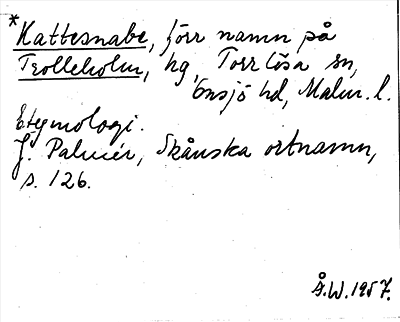 *Kattesnabe, förr namn på
Trolleholm, hg, Torrlösa sn,
Onsjö hd, Malm. l.
Etymologi.
J. Palmér, Skånska ortnamn,
s. 126.
Å.W. 1957.